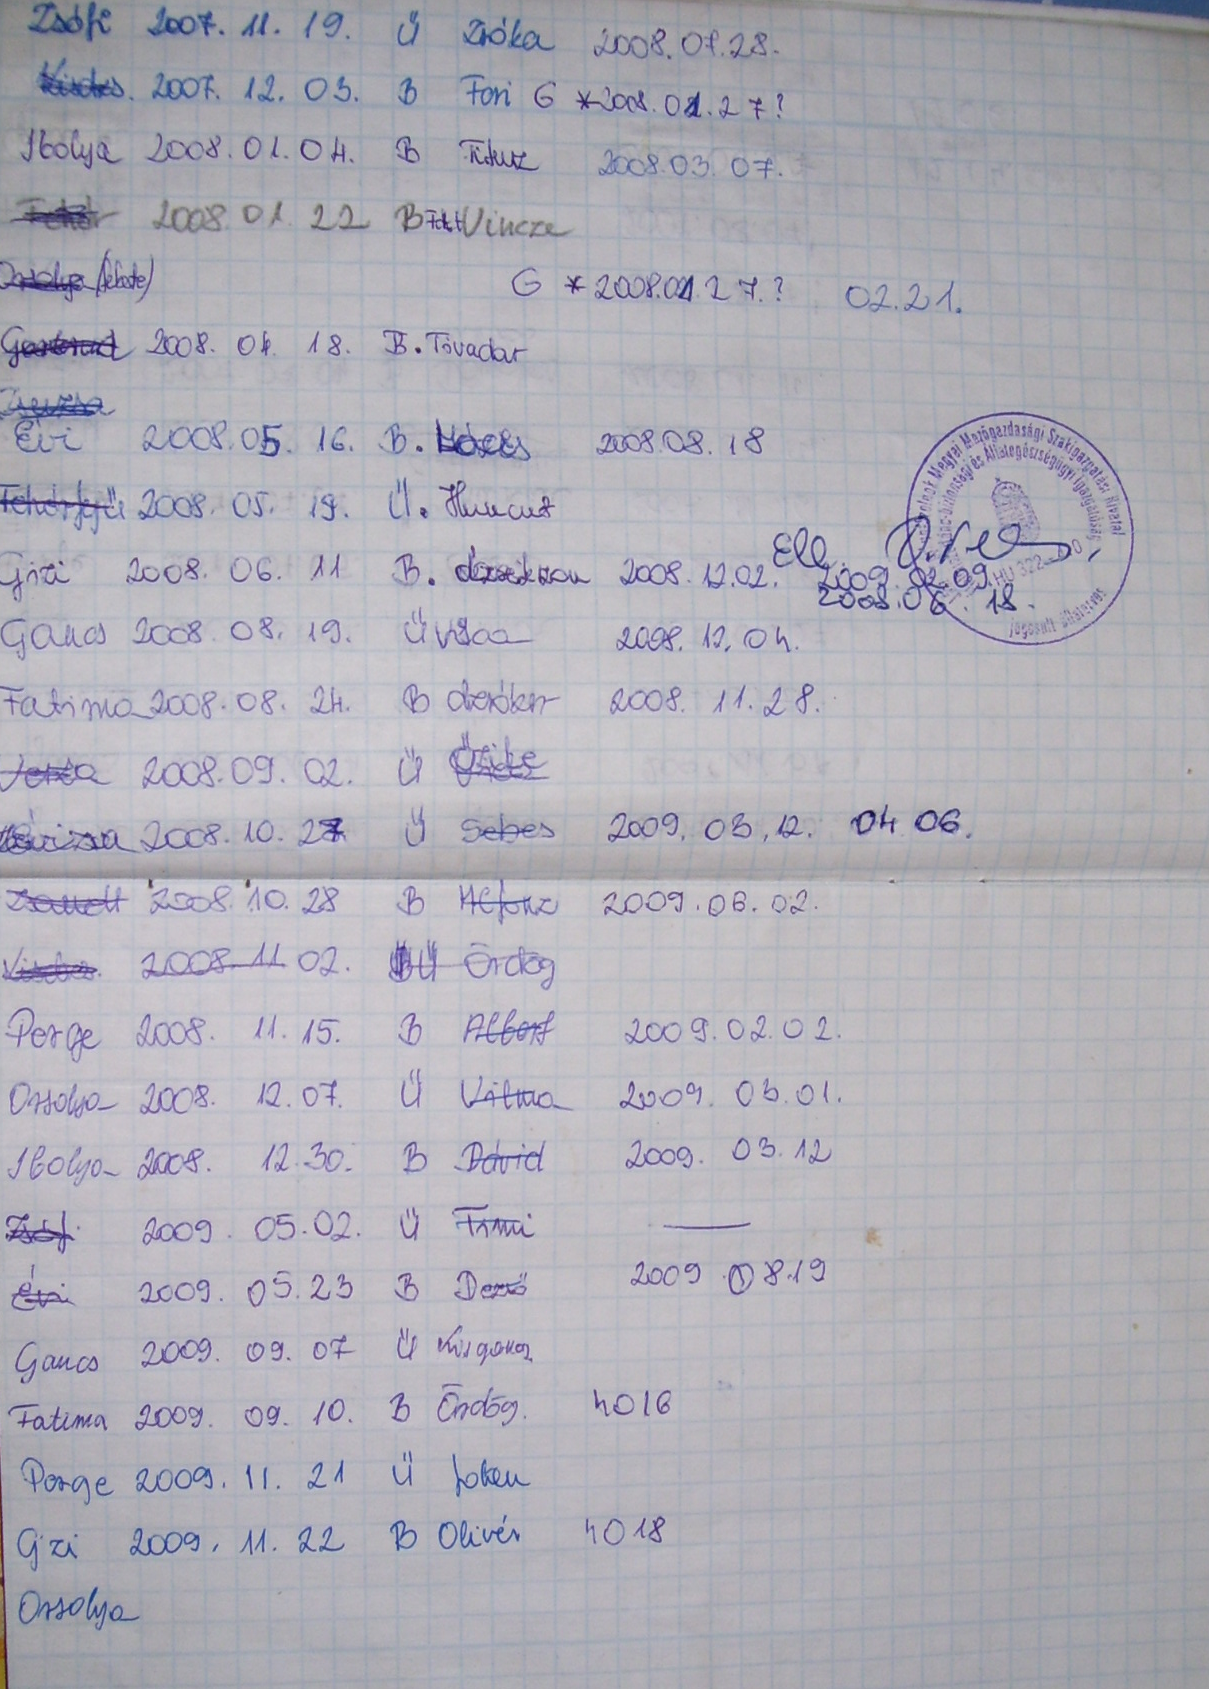 Zsófi 2007. 11. 19. Ü Zróka 2008.01.28.
2007. 12. 03. B Fori G *2008.01.27?
Ibolya 2008.01.04. B Titusz 2008.03.07.
Fehér 2008.01.22 B Vincze
Orsolya (fekete) G *2008.01.27.? 02.21.
2008. 04. 18. B. Tivadar
Zsuzsa
Évi 2008.05. 16. B. 2008.08.18
Fehérfejű 2008. 05. 19. Ü.
Gizi 2008. 06. 11 B. 2008.12.02.
Ell.
2009.02.09.
2008.06.18.
HU 322
jogosult állatorvos
Gancs 2008. 08. 19. Ü 2008. 12. 04.
Fatima 2008.08. 24. B 2008. 11.28.
2008.09. 02. Ü Őzike
2008.10. 27 Ü Sebes 2009. 03.12. 04 06.
2008. 10. 28 B Alfonz 2009.06.02.
2008 11 02. Ü Ördög
Pörge 2008. 11. 15. B Albert 2009.02.02.
Orsolya 2008. 12.07. Ü Vilma 2009. 03.01.
Ibolya 2008. 12.30. B Dávid 2009. 03.12
Zsófi 2009. 05.02. Ü Frini
Évi 2009. 05.23 B Dezső 2009.08.19
Gancs 2009. 09. 07 Ü
Fatima 2009. 09. 10. B Ördög. 4016
Pörge 2009. 11. 21 Ü
Gizi 2009. 11. 22 B Olivér 4018
Orsolya